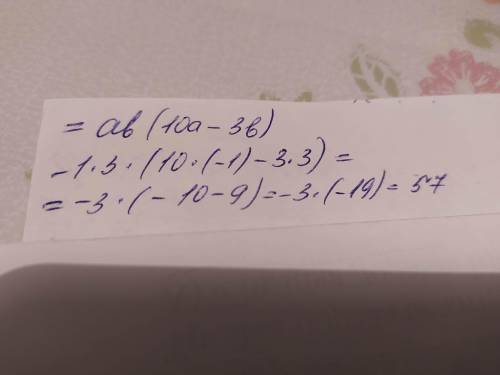 = ab (10a - 3b)
-1 · 3 · (10 · (-1) - 3 · 3) =
= -3 · (-10 - 9) = -3 · (-19) = 57